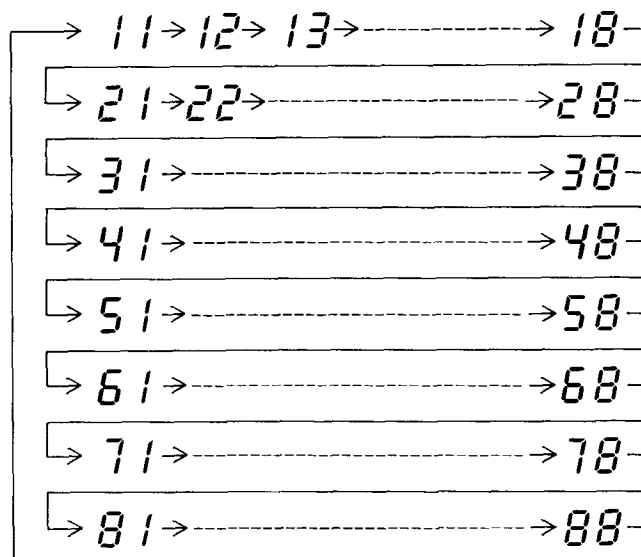 11 → 12 → 13 → 18
21 → 22 → 28
31 → 38
41 → 48
51 → 58
61 → 68
71 → 78
81 → 88